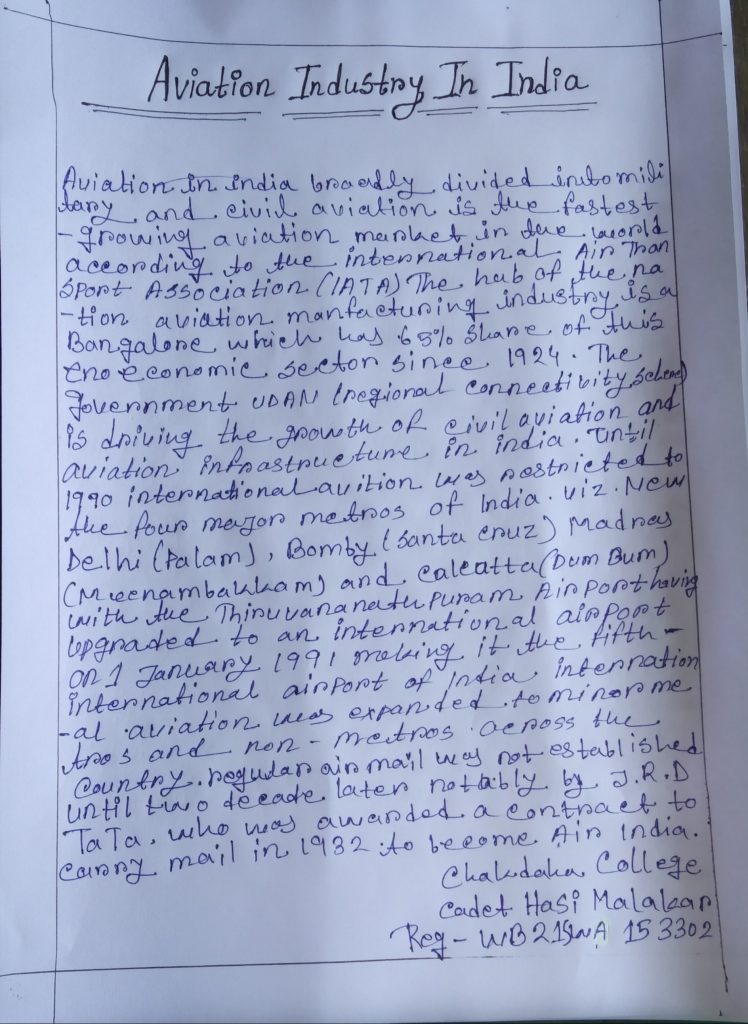 Aviation Industry In India
Aviation in india broadly divided into mili
tary and civil aviation is the fastest
- growing aviation market in the world
according to the international Air Tran
sport Association (IATA) The hub of the na
-tion aviation manfacturing industry is a
Bangalore which has 65% share of this
economic sector since 1924. The
government UDAN (regional connectivity scheme)
is driving the growth of civil aviation and
aviation infrastructure in india. Until
1990 international avition was restricted to
the four major metros of India. viz. New
Delhi (Palam), Bomby (Santa cruz) Madras
(Meenambakkam) and calcatta (Dum Bum)
with the Thiruvananathpuram Airport having
upgraded to an international airport
on 1 January 1991 making it the fifth-
international airport of India internation
-al aviation was expanded to minor me
tros and non-metros across the
country. regular air mail was not established
until two decade later notably by J.R.D
TaTa. who was awarded a contract to
carry mail in 1932 to become Air India.
Chakdaha College
Cadet Hasi Malakar
Reg - WB21SWA 153302